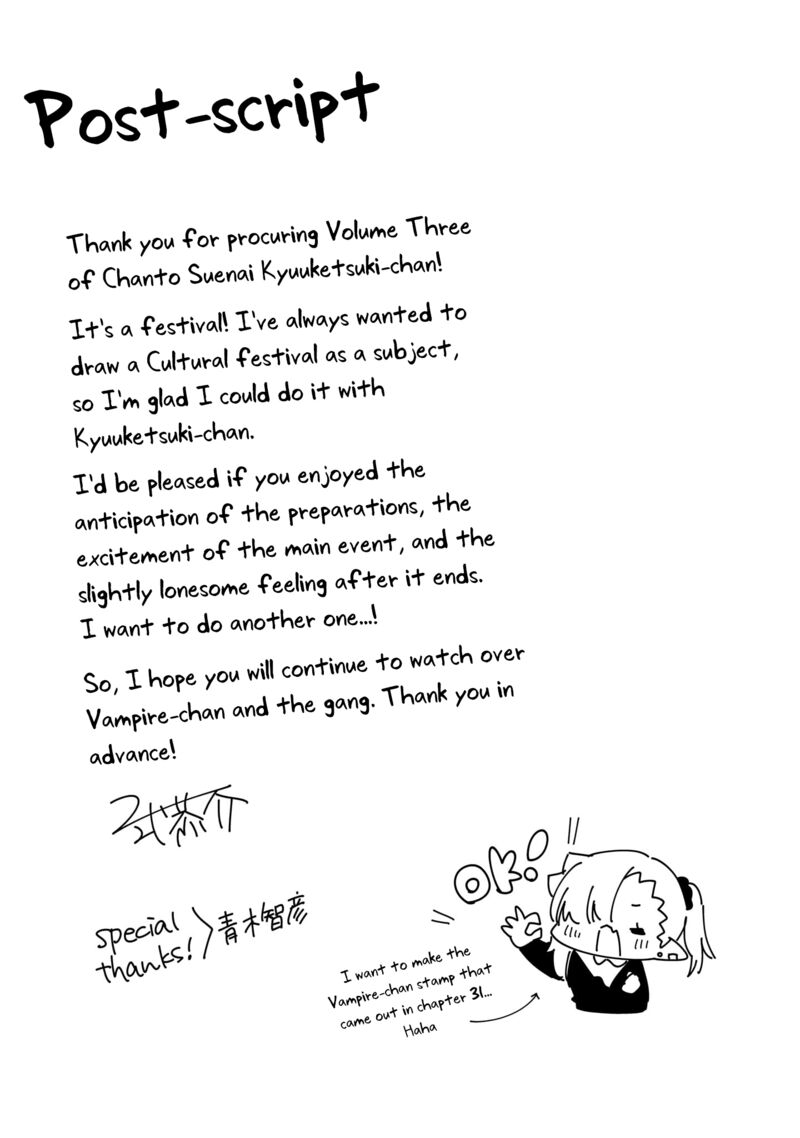 Post-script
Thank you for procuring Volume Three
of Chanto Suenai Kyuuketsuki-chan!
It's a festival! I've always wanted to
draw a Cultural festival as a subject,
so I'm glad I could do it with
Kyuuketsuki-chan.
I'd be pleased if you enjoyed the
anticipation of the preparations, the
excitement of the main event, and the
slightly lonesome feeling after it ends.
I want to do another one...!
So, I hope you will continue to watch over
Vampire-chan and the gang. Thank you in
advance!
弐式恭介
special
thanks!
青木智彦
OK!
I want to make the
Vampire-chan stamp that
came out in chapter 31...
Haha